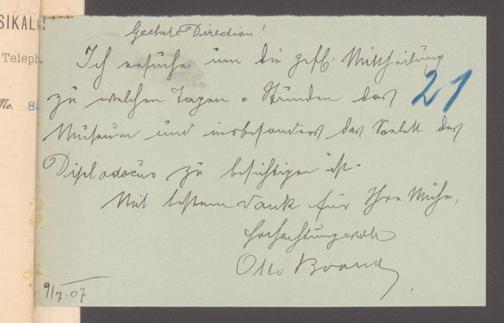 SIKAL
Teleph
No. 8
Geehrte Direction!
Ich ersuche um die gefl. Mittheilung
zu welchen Tagen & Stunden das
21
Museum und insbesonders das Skelett des
Diplodocus zu besichtigen ist.
Mit bestem Dank für Ihre Mühe,
Hochachtungsvoll
Otto
9/7.07